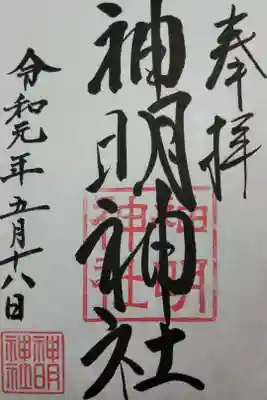 奉拝
神明神社
神明
神社
令和元年五月十八日
神明
神社